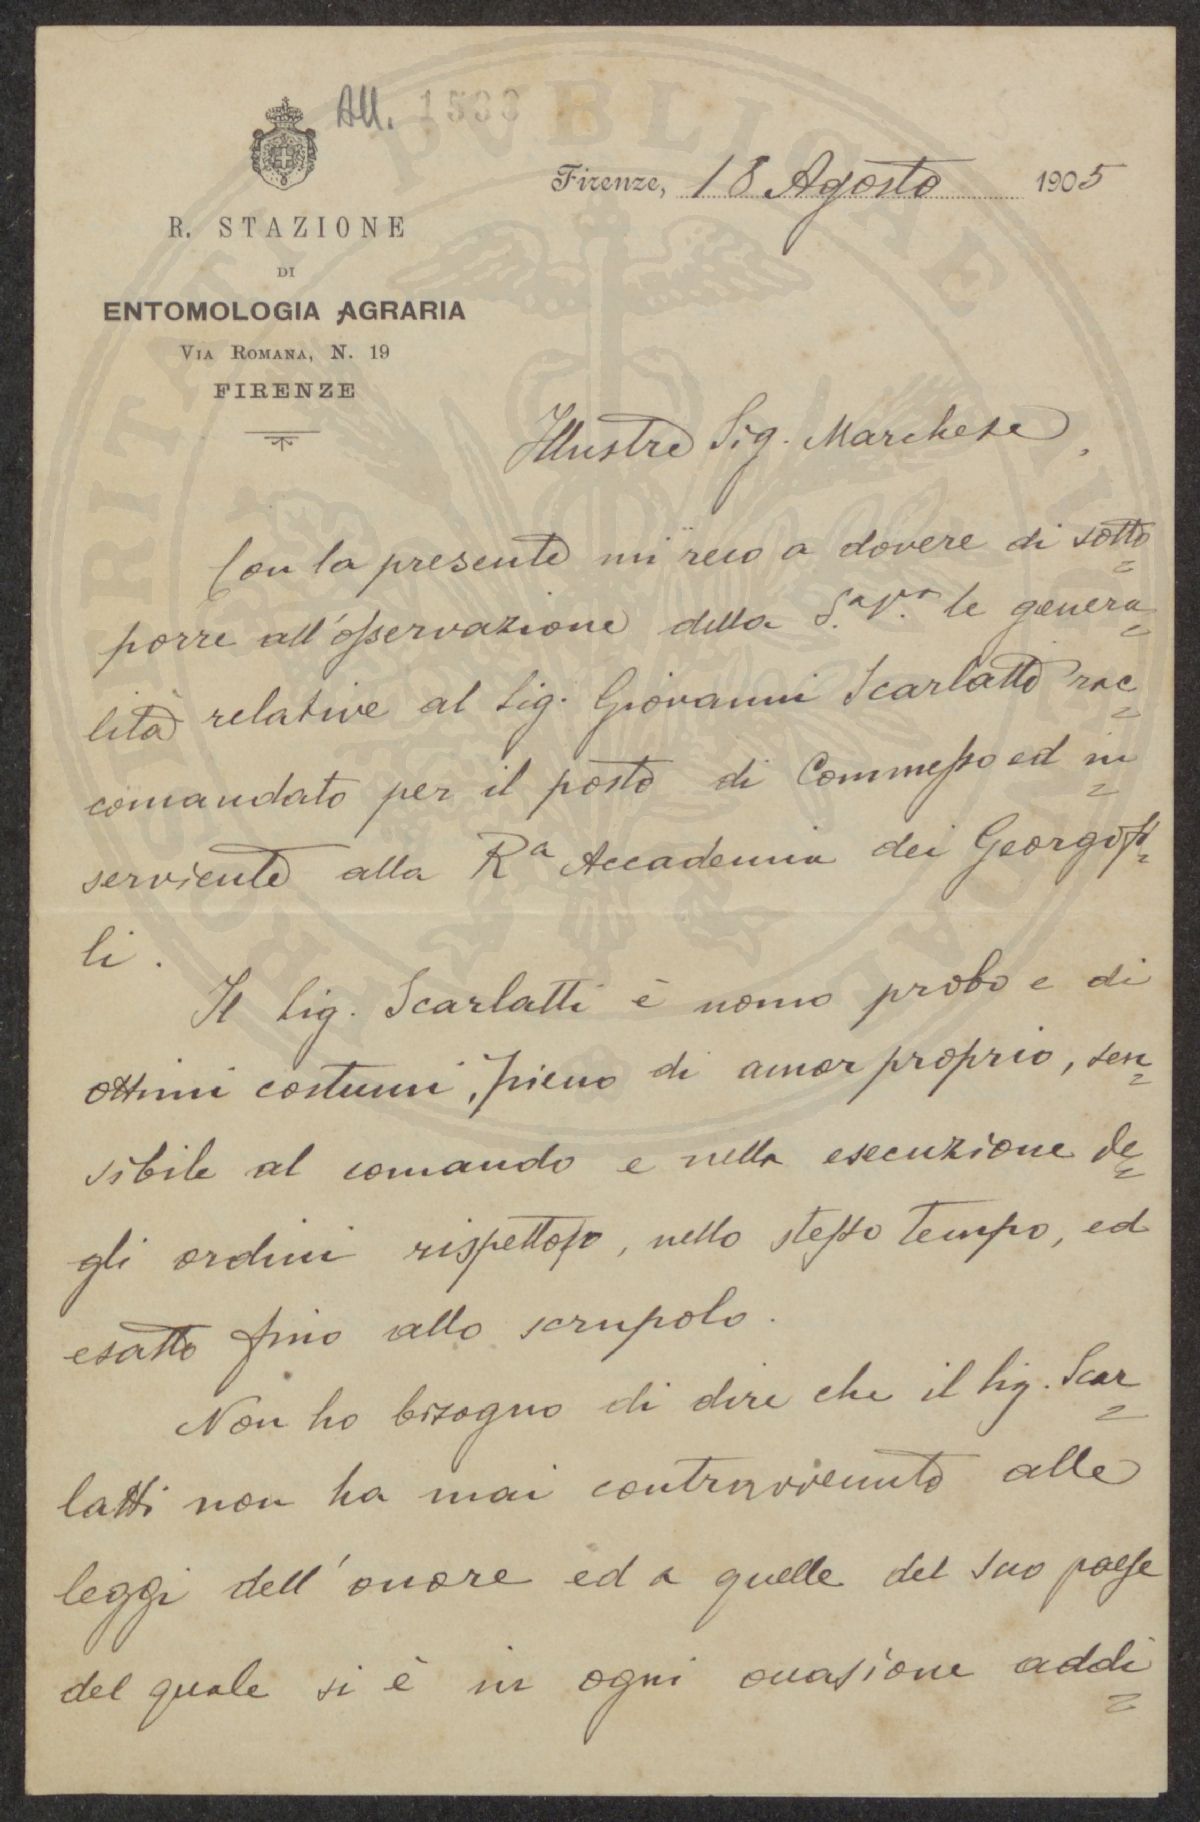 All. 1533
R. STAZIONE
DI
ENTOMOLOGIA AGRARIA
VIA ROMANA, N. 19
FIRENZE
Firenze, 18 Agosto 1905
Illustre Sig. Marchese,
Con la presente mi reco a dovere di sotto=
porre all'osservazione della S.a V.a le genera=
lità relative al Sig. Giovanni Scarlatti rac=
comandato per il posto di Commesso ed in=
serviente alla R.a Accademia dei Georgofi=
li.
Il Sig. Scarlatti è uomo probo e di
ottimi costumi, pieno di amor proprio, sen=
sibile al comando e nella esecuzione de=
gli ordini rispettoso, nello stesso tempo, ed
esatto fino allo scrupolo.
Non ho bisogno di dire che il Sig. Scar=
latti non ha mai contravvenuto alle
leggi dell'onore ed a quelle del suo paese
del quale si è in ogni occasione addi=